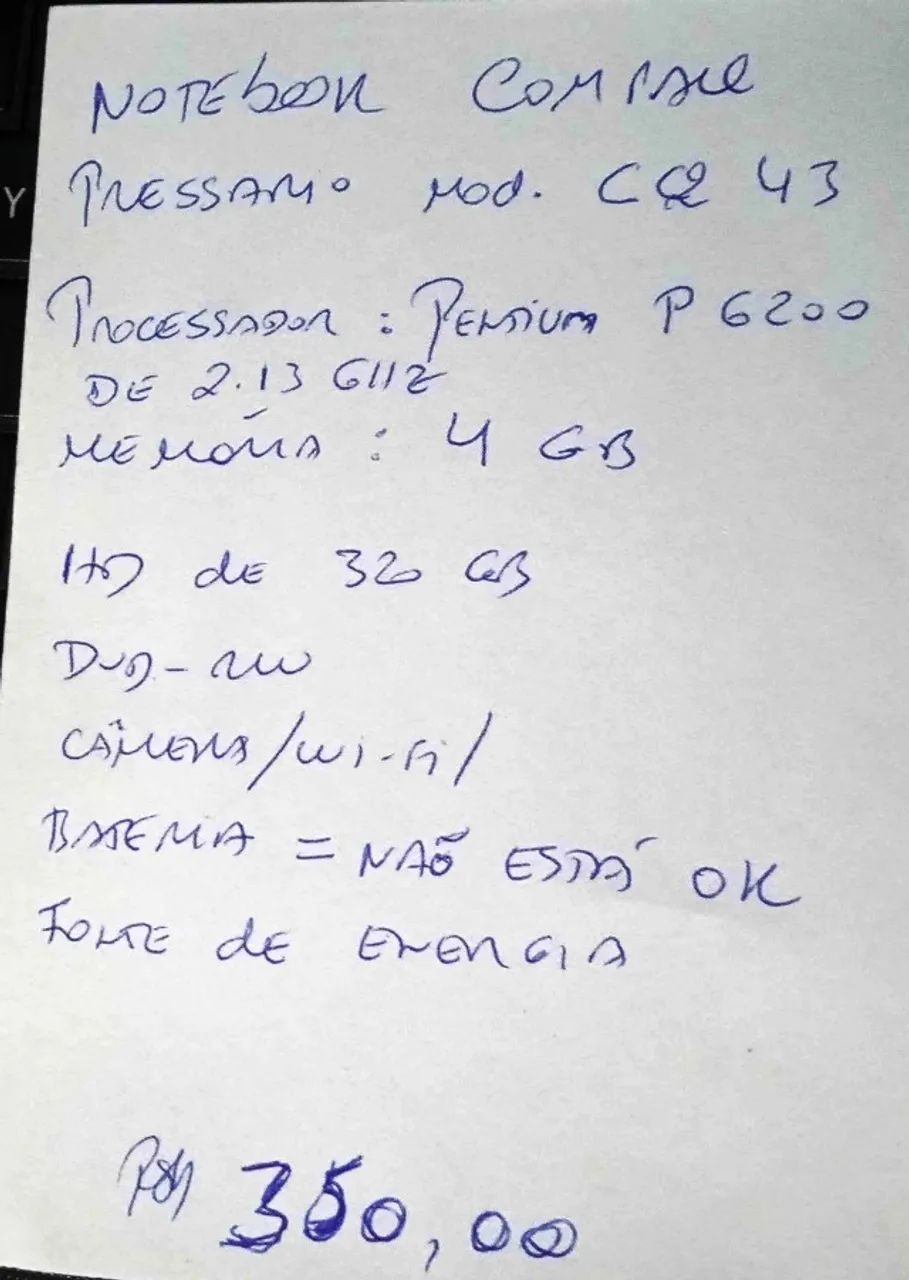 Y
NOTEbOOK COMPAQ
PRESSARIO MOD. CQ 43
PROCESSADOR : PENTIUM P 6200
DE 2.13 GHZ
MEMÓRIA : 4 GB
HD dE 320 GB
DVD-RW
CÂMERA/Wi-Fi/
BATERIA = NÃO ESTÁ OK
FONTE dE ENERGIA
350,00